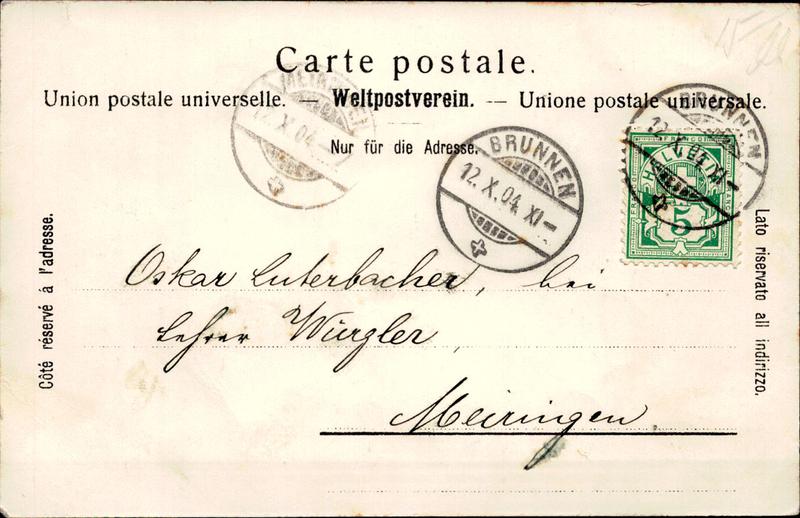 Carte postale.
Union postale universelle. — Weltpostverein. — Unione postale universale.
Nur für die Adresse.
BRUNNEN
12. X. 04. XI—
BRUNNEN
12. X. 04. XI—
12. X. 04
HELVETIA
FRANCO
5
Côté réservé à l'adresse.
Lato riservato all indirizzo.
Oskar Luterbacher, bei
Lehrer Würgler,
Meiringen.